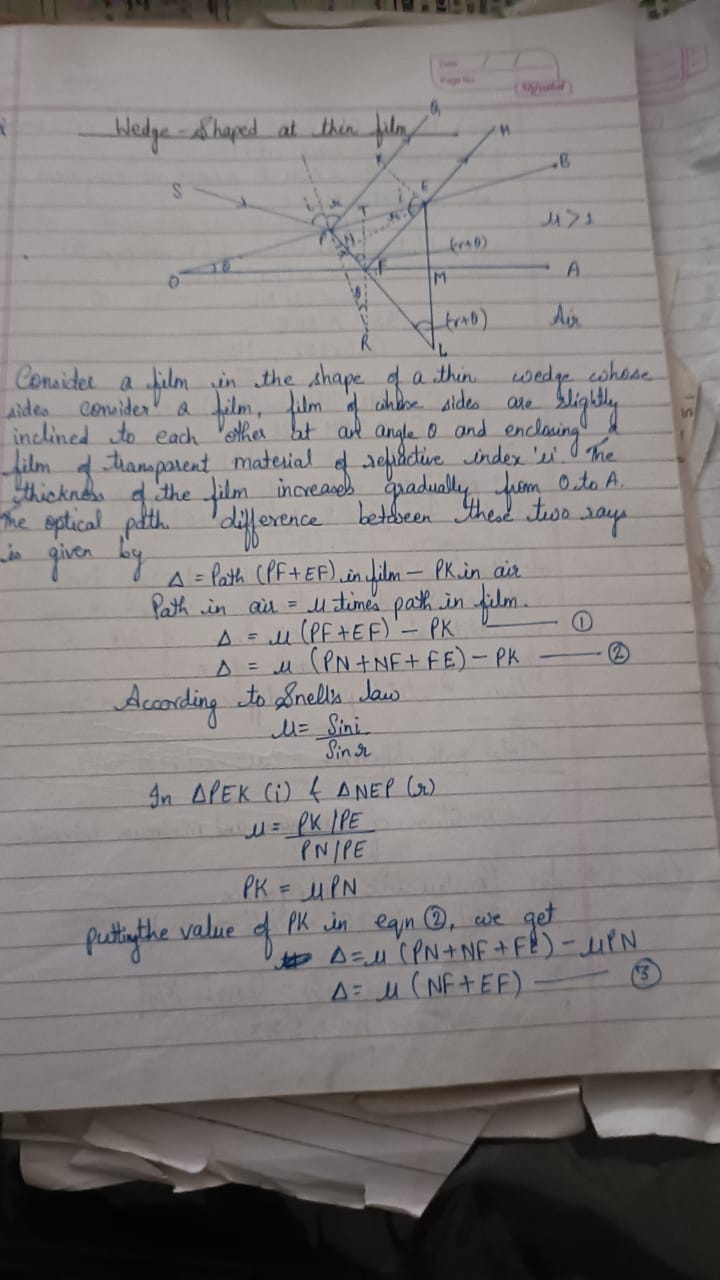 Date / /
Page No.
Shivalal
Wedge-Shaped at thin film
Q
H
S
K
E
B
i
r
T
i
P
N
μ>1
(r+θ)
O
θ
F
M
A
θ
(r+θ)
Air
R
L
Consider a film in the shape of a thin wedge whose
sides consider a film, film of whose sides are slightly
inclined to each other at an angle θ and enclosing a
film of transparent material of refractive index 'u'. The
thickness of the film increases gradually from O to A.
The optical path difference between these two rays
is given by
Δ = Path (PF+EF) in film – PK in air
Path in air = μ times path in film.
Δ = μ (PF+EF) – PK —— ①
Δ = μ (PN+NF+FE) – PK —— ②
According to Snell's law
μ = Sini
Sinr
In ΔPEK (i) & ΔNEP (r)
μ = PK/PE
PN/PE
PK = μPN
putting the value of PK in eqn ②, we get
Δ=μ (PN+NF+FE) – μPN
Δ= μ (NF+EF) —— ③